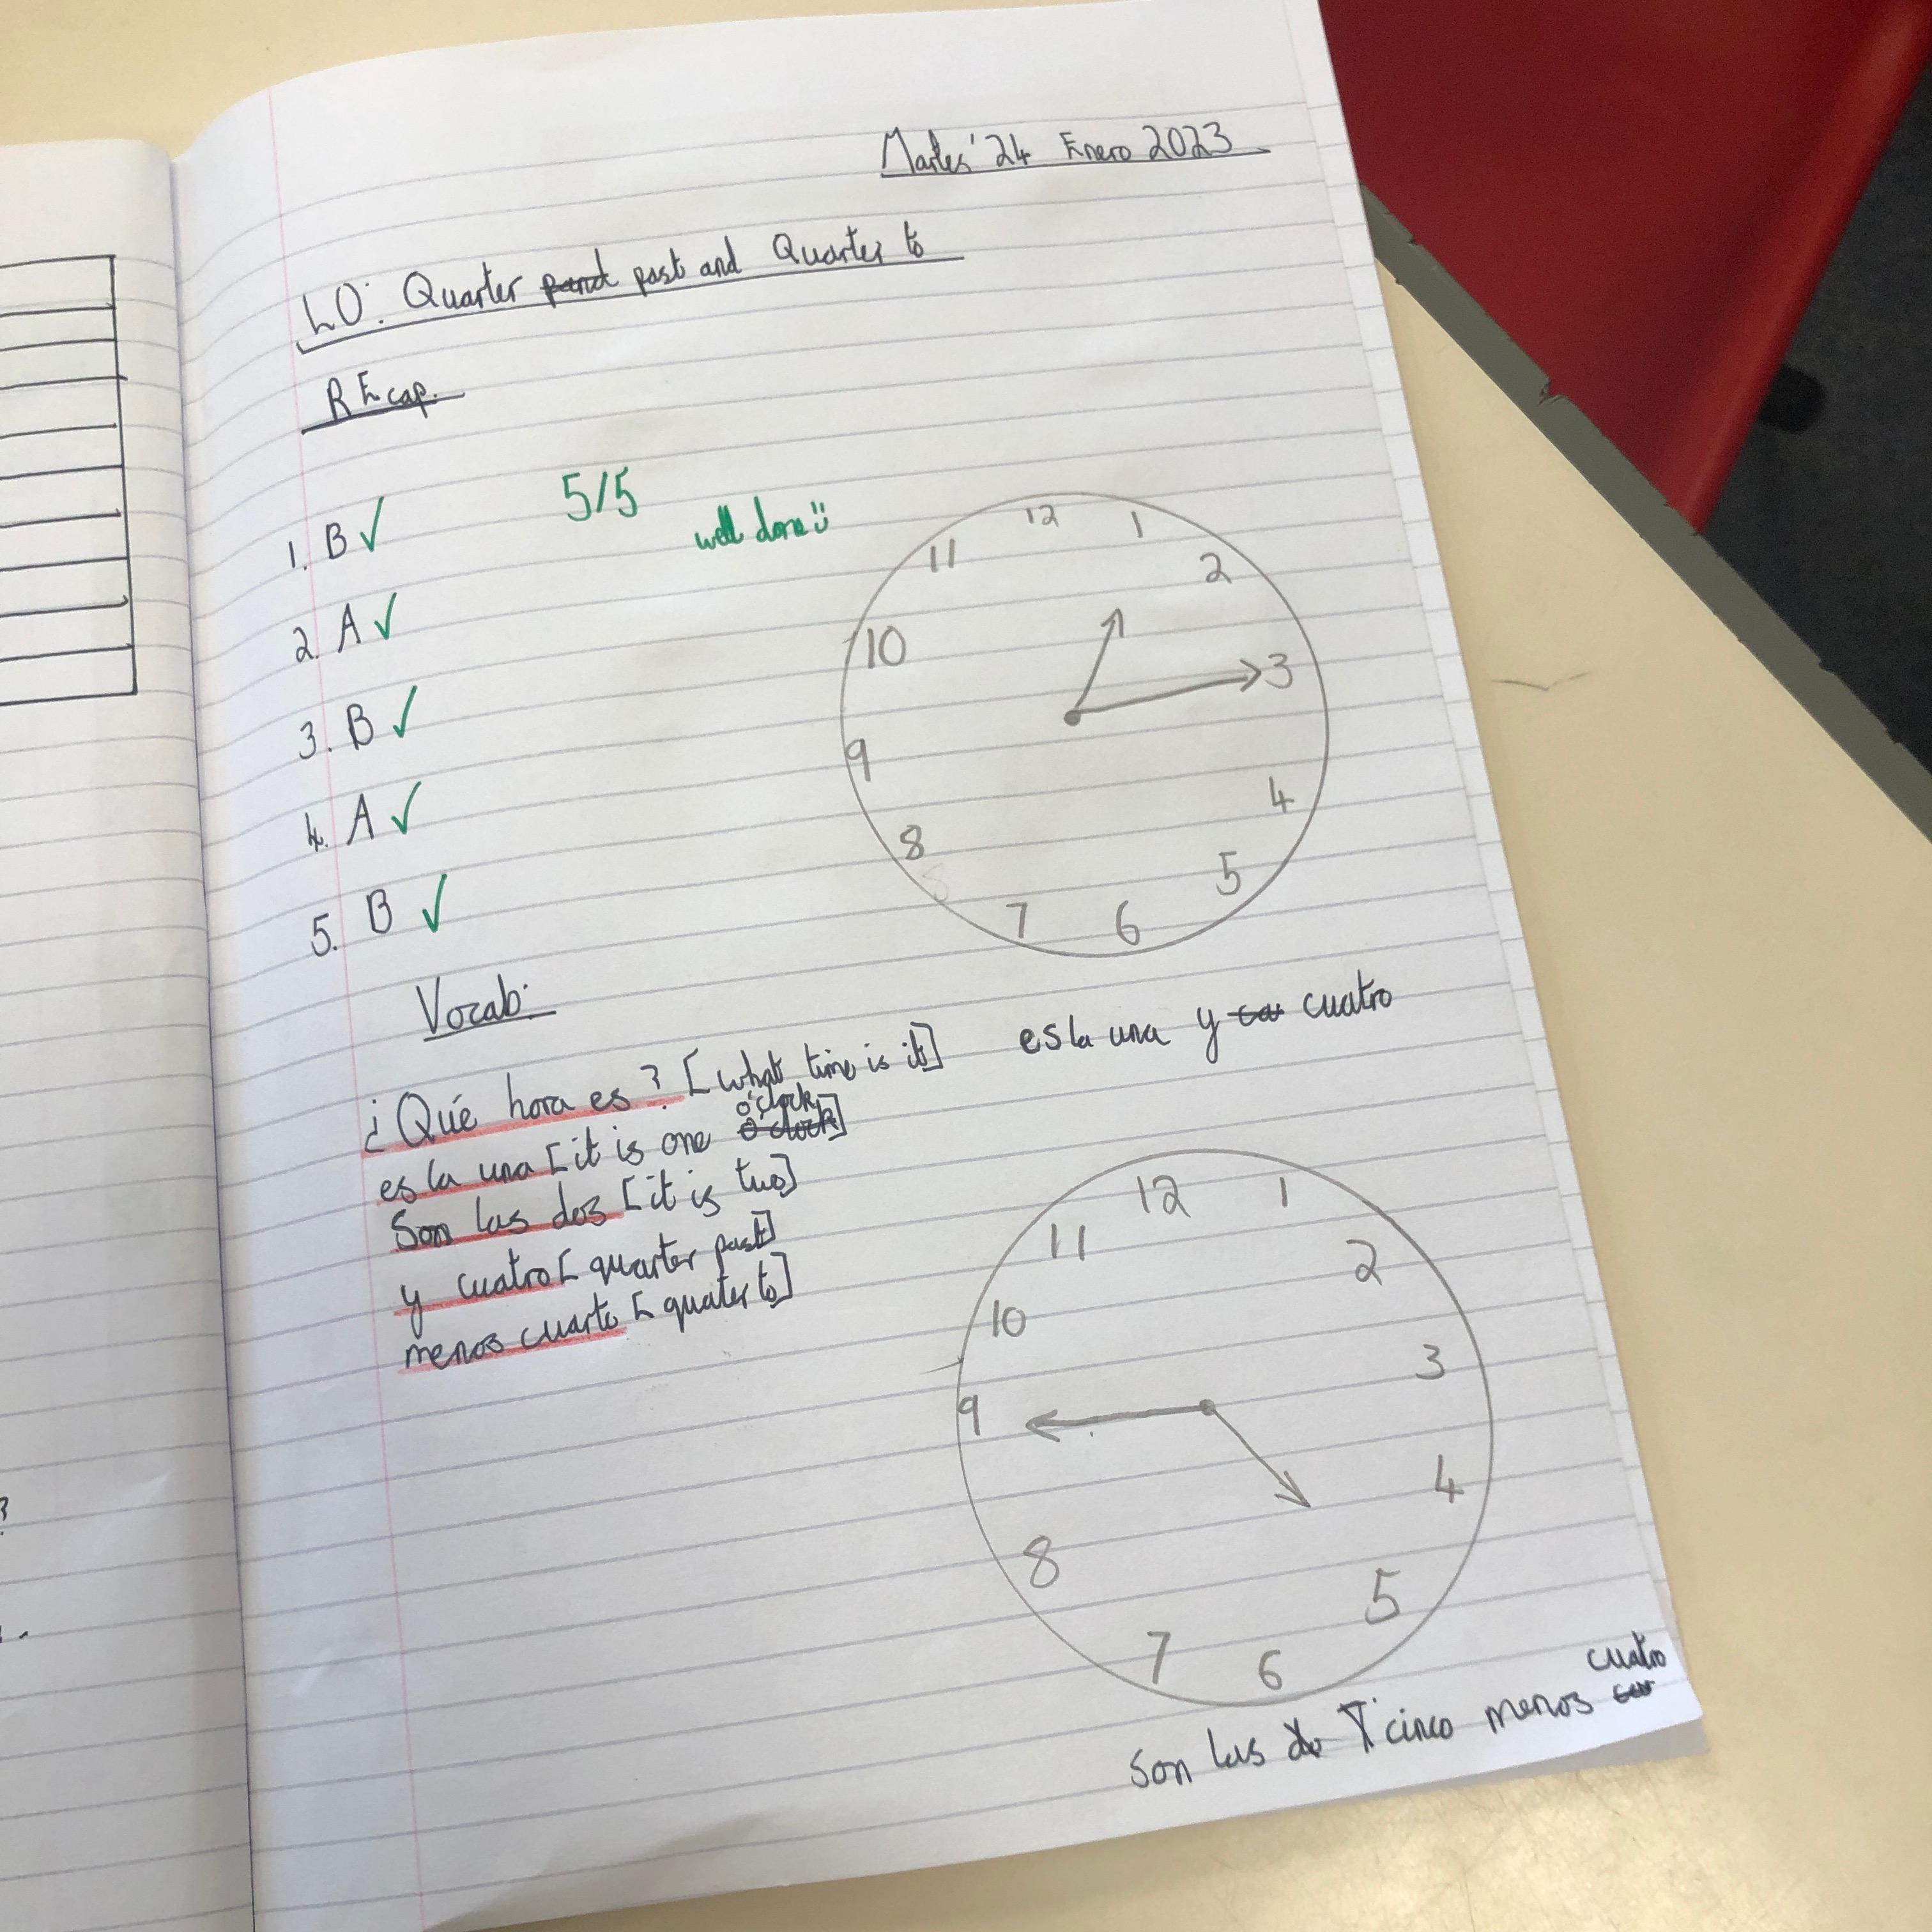 Martes 24 Enero 2023
LO: Quarter past and Quarter to
REcap.
5/5
well done
1. B ✓
2. A ✓
3. B ✓
4. A ✓
5. B ✓
12
1
2
3
4
5
6
7
8
9
10
11
Vocab:
¿Qué hora es? [what time is it]
es la una [it is one o'clock]
Son las dos [it is two]
y cuatro [quarter past]
menos cuarto [quater to]
es la una y cuatro
12
1
2
3
4
5
6
7
8
9
10
11
son las cinco menos cuatro